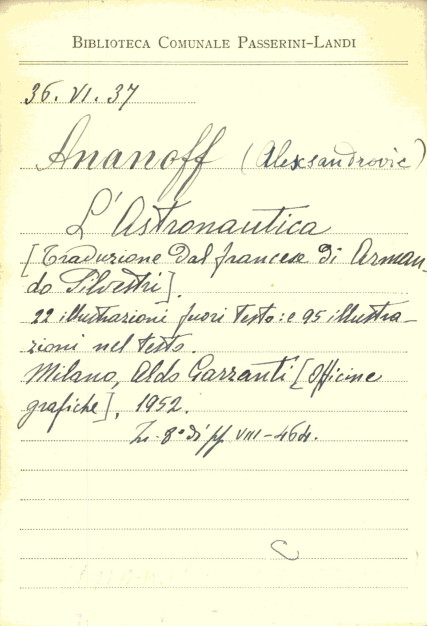 BIBLIOTECA COMUNALE PASSERINI-LANDI
36. VI. 37
Ananoff (Alexsandrovic)
L'Astronautica
[Traduzione dal francese di Arman-
do Silvestri].
22 illustrazioni fuori testo: e 95 illustra-
zioni nel testo.
Milano, Aldo Garzanti [Officine
grafiche], 1952.
In 8° di pp VIII-464.